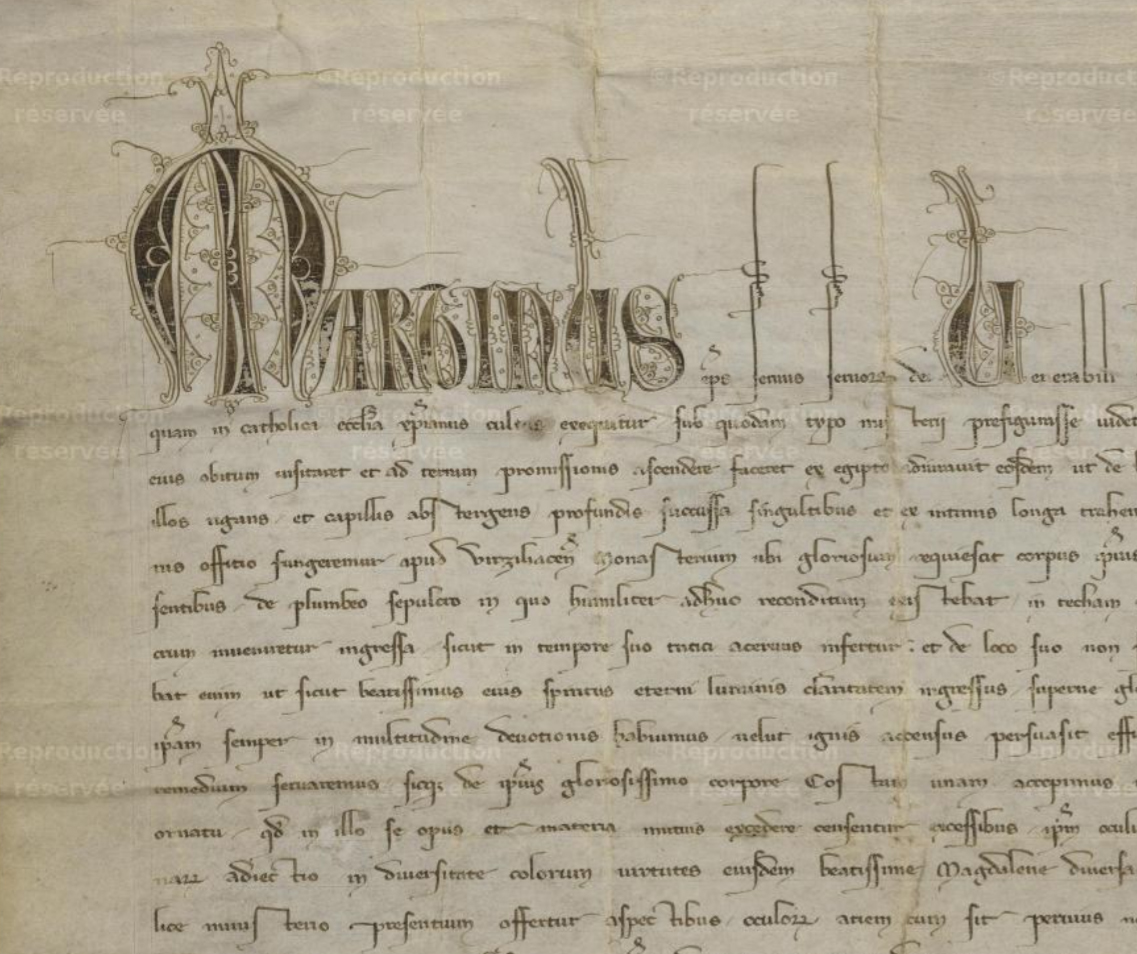 Martinus eps servus servorꝫ dei Venerabili
quam in catholica ecclia xpianus cultus exequitur sub quodam typo misterii prefigurasse videt
eius obitum visitaret et ad terram promissionis ascendere faceret ex egipto adiuravit eosdem ut de
illos rigans et capillis abstergens profundis succussa singultibus et ex intimis longa trahen
nis offitio fungeremur apud Virziliaceñ Monasterium ubi gloriosum requiescit corpus ipius
sentibus de plumbeo sepulcro in quo humiliter adhuc reconditum existebat in techam
crum inveniretur ingressa sicut in tempore suo tritici acervus infertur et de loco suo non
bat enim ut sicut beatissimus eius spiritus eterni luminis claritatem ingressus superne gl
ipam semper in multitudine devotionis habuimus velut ignis accensus persuasit effi
remedium servaremus sicqꝫ de ipius gloriosissimo corpore Costam unam accepimus
ornatu qd in illo se opus et materia mutuis excedere censentur excessibus ipm oculi
adiectio in diversitate colorum virtutes eiusdem beatissime Magdalene diversa
lice ministerio presentium offertur aspectibus oculorꝫ aciem cum sit pervius